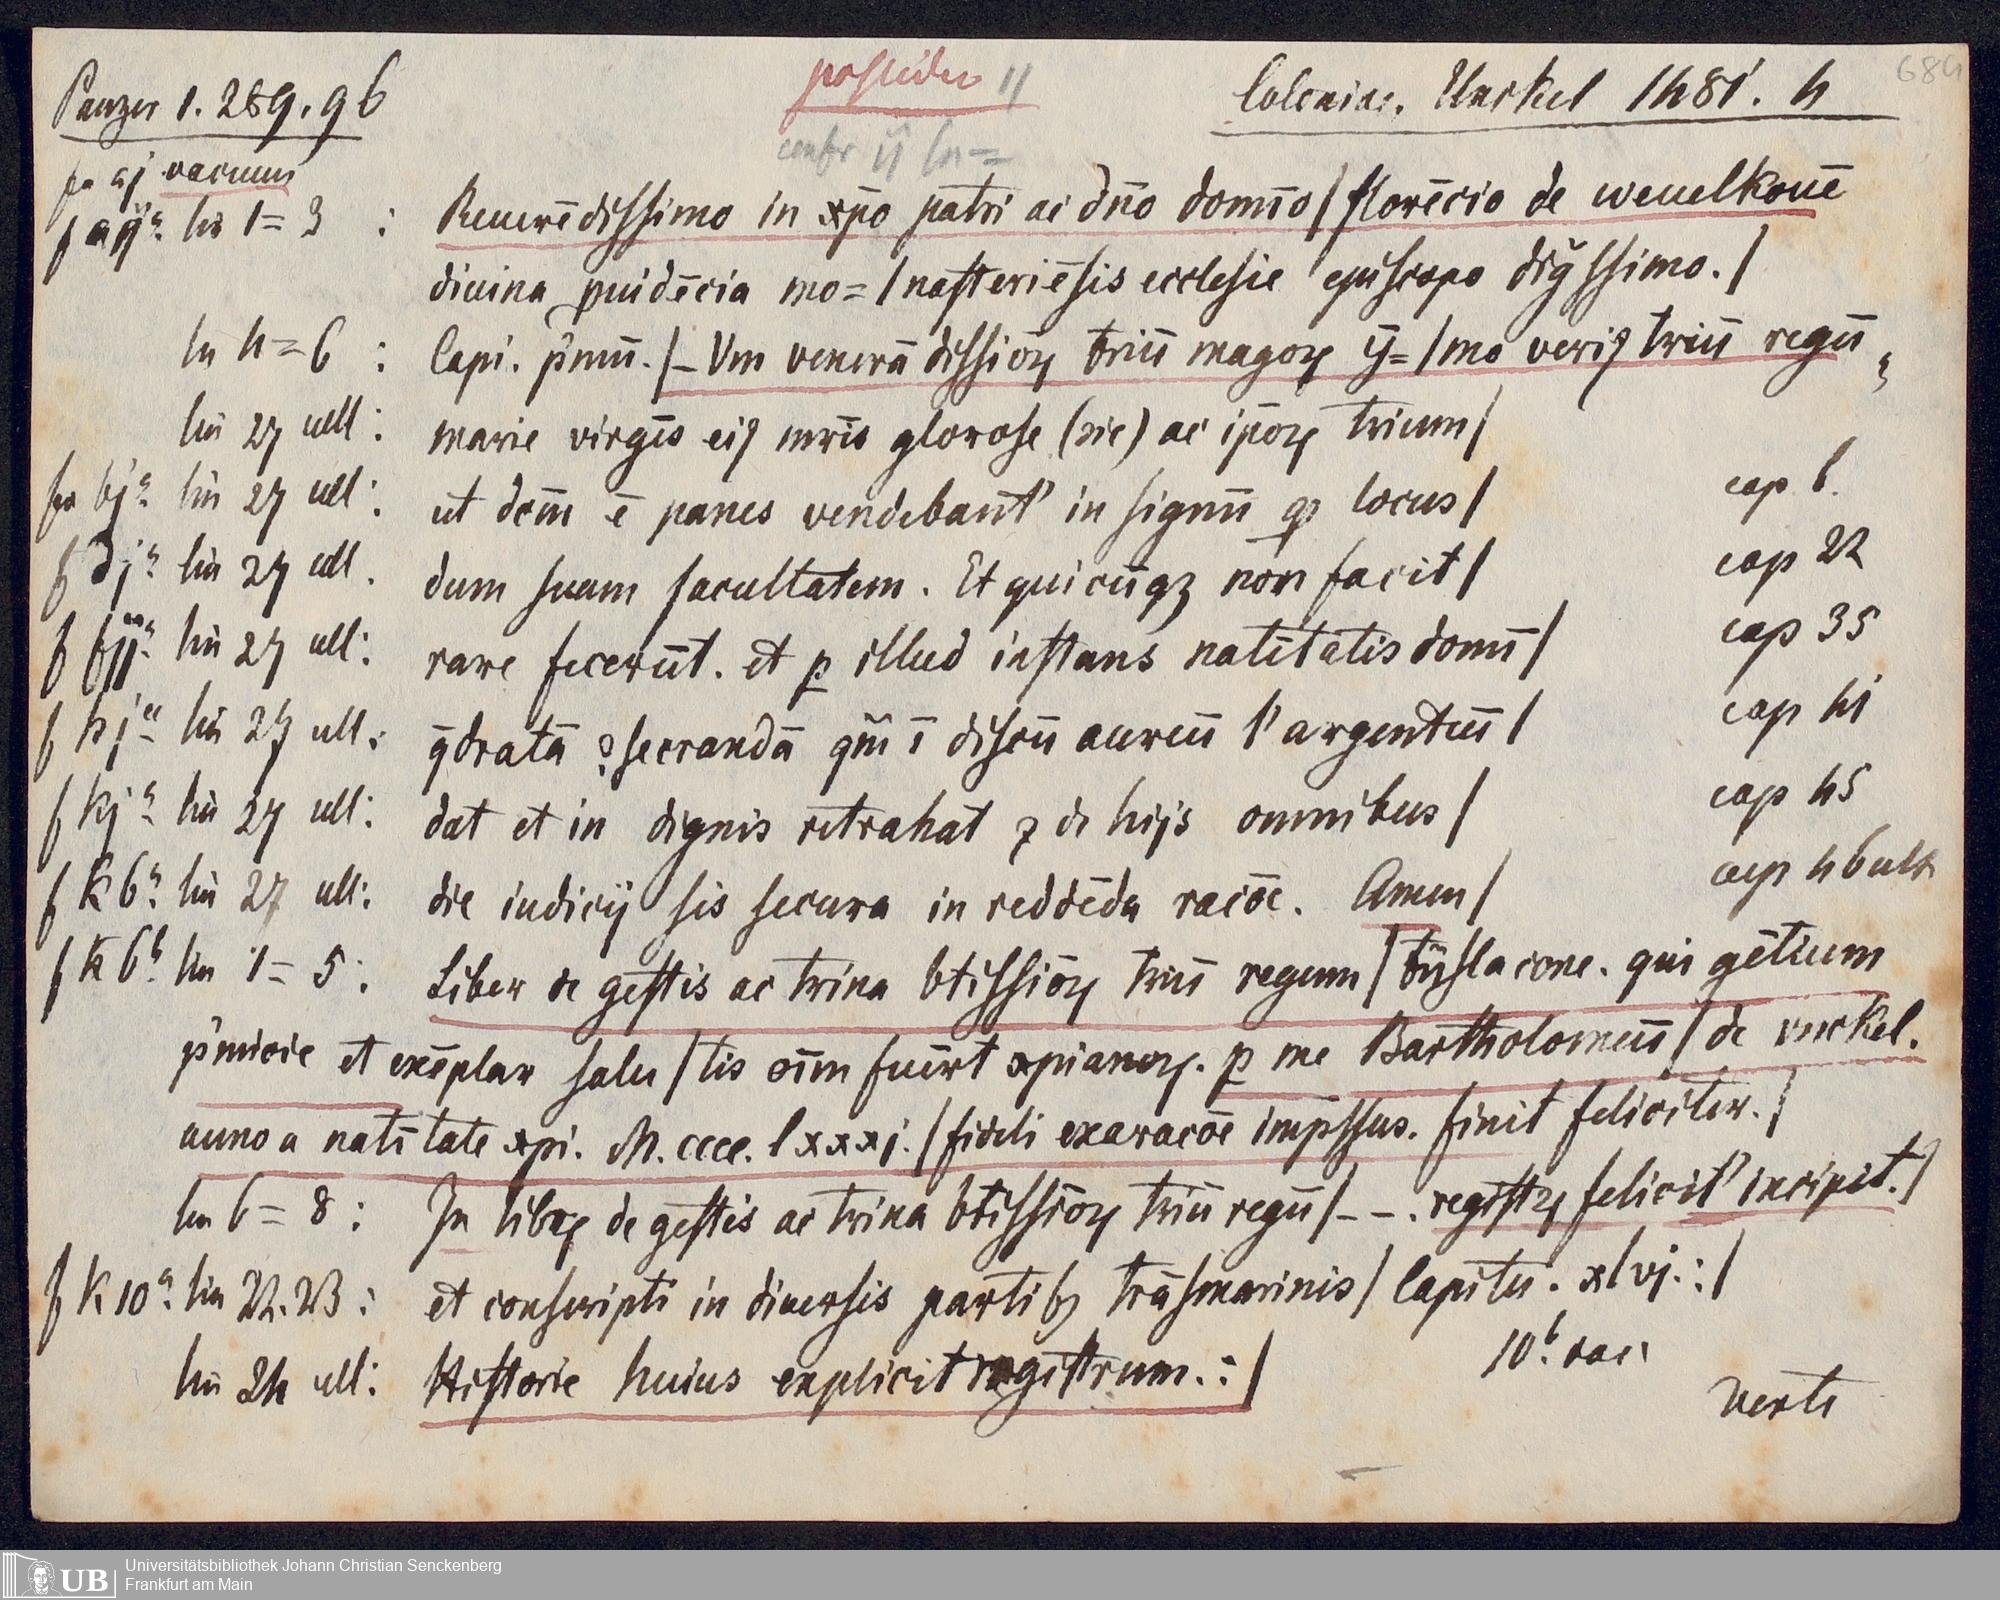 Panzer 1. 289. 96
possideo 11
Coloniae. Unkel 1481. 4
684
confr ij lin=
fo aj vacuum
f aijᵃ. lin 1=3 : Reuerēdissimo in xp̄o pat̄ri ac dn̄o domīo / florēcio de weuelkouē
diuina puidēcia mo= / nasteriēsis ecclesie episcopo digssimo. /
lin 4=6 : Capi. p'mū. / – Vm venerādissioꝝ triū magoꝝ ȳ= / mo veriꝰ triū regū
lin 27 ult : marie virgīs eiꝰ mr̄is glorose (sic) ac ip̄oꝝ trium /
fo bjᵃ. lin 27 ult : ut dc̄m ē panes vendebant' in signū ꝙ locus / cap 6.
f djᵃ. lin 27 ult. dum suam facultatem. Et quicūqꝫ non facit / cap 22
f fijᵃ. lin 27 ult : rare fecerūt. et p illud instans natītatis domī / cap 35
f hjᵃ lin 27 ult : q̄dratā ꝯsecrandā qm̄ ī discū aureū l' argentēū / cap 41
f kjᵃ lin 27 ult : dat et in dignis retrahat ꝛ de hijs omnibus / cap 45
f k6ᵃ. lin 27 ult : die iudicij sis secura in reddēda racōe. Amen / cap 46 ult
f k6ᵇ. lin 1=5 : Liber de gestis ac trina btissioꝝ triū regum / trāslacone. qui gētium
p'micie et exēplar salu / tis oīm fuerūt xpianoꝝ. p me Bartholomeū / de vnckel.
anno a natītate xpi. M. cccc. lxxxj. / fideli exaracōe imp̄ssus. finit feliciter. /
lin 6=8 : In libꝝ de gestis ac trina btissioꝝ triū regū / – – . registꝝ felicit' incipit. /
f k10ᵃ. lin 22. 23 : et conscripti in diuersis partibꝫ trāsmarinis / Capitu. xlvj. : /
lin 24 ult : Historie huius explicit registrum. : / 10ᵇ. vac.
verte
Universitätsbibliothek Johann Christian Senckenberg
UB Frankfurt am Main